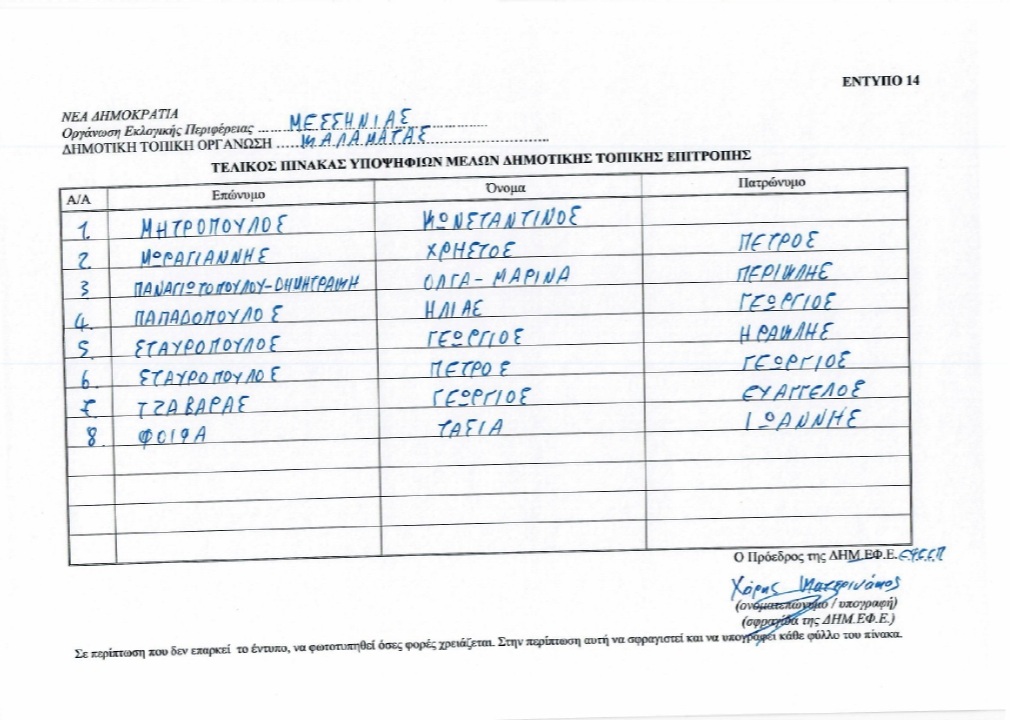 ΕΝΤΥΠΟ 14
ΝΕΑ ΔΗΜΟΚΡΑΤΙΑ
Οργάνωση Εκλογικής Περιφέρειας ΜΕΣΣΗΝΙΑΣ
ΔΗΜΟΤΙΚΗ ΤΟΠΙΚΗ ΟΡΓΑΝΩΣΗ ΚΑΛΑΜΑΤΑΣ
ΤΕΛΙΚΟΣ ΠΙΝΑΚΑΣ ΥΠΟΨΗΦΙΩΝ ΜΕΛΩΝ ΔΗΜΟΤΙΚΗΣ ΤΟΠΙΚΗΣ ΕΠΙΤΡΟΠΗΣ
Α/Α Επώνυμο Όνομα Πατρώνυμο
1. ΜΗΤΡΟΠΟΥΛΟΣ ΚΩΝΣΤΑΝΤΙΝΟΣ
2 ΜΩΡΑΓΙΑΝΝΗΣ ΧΡΗΣΤΟΣ ΠΕΤΡΟΣ
3 ΠΑΝΑΓΙΩΤΟΠΟΥΛΟΥ-ΔΗΜΗΤΡΑΚΗ ΟΛΓΑ-ΜΑΡΙΝΑ ΠΕΡΙΚΛΗΣ
4. ΠΑΠΑΔΟΠΟΥΛΟΣ ΗΛΙΑΣ ΓΕΩΡΓΙΟΣ
5 ΣΤΑΥΡΟΠΟΥΛΟΣ ΓΕΩΡΓΙΟΣ ΗΡΑΚΛΗΣ
6. ΣΤΑΥΡΟΠΟΥΛΟΣ ΠΕΤΡΟΣ ΓΕΩΡΓΙΟΣ
7 ΤΖΑΒΑΡΑΣ ΓΕΩΡΓΙΟΣ ΕΥΑΓΓΕΛΟΣ
8. ΦΟΙΦΑ ΤΑΣΙΑ ΙΩΑΝΝΗΣ
Ο Πρόεδρος της ΔΗΜ.ΕΦ.Ε.
Χάρης
(ονοματεπώνυμο / υπογραφή)
(σφραγίδα της ΔΗΜ.ΕΦ.Ε.)
Σε περίπτωση που δεν επαρκεί το έντυπο, να φωτοτυπηθεί όσες φορές χρειάζεται. Στην περίπτωση αυτή να σφραγιστεί και να υπογραφεί κάθε φύλλο του πίνακα.